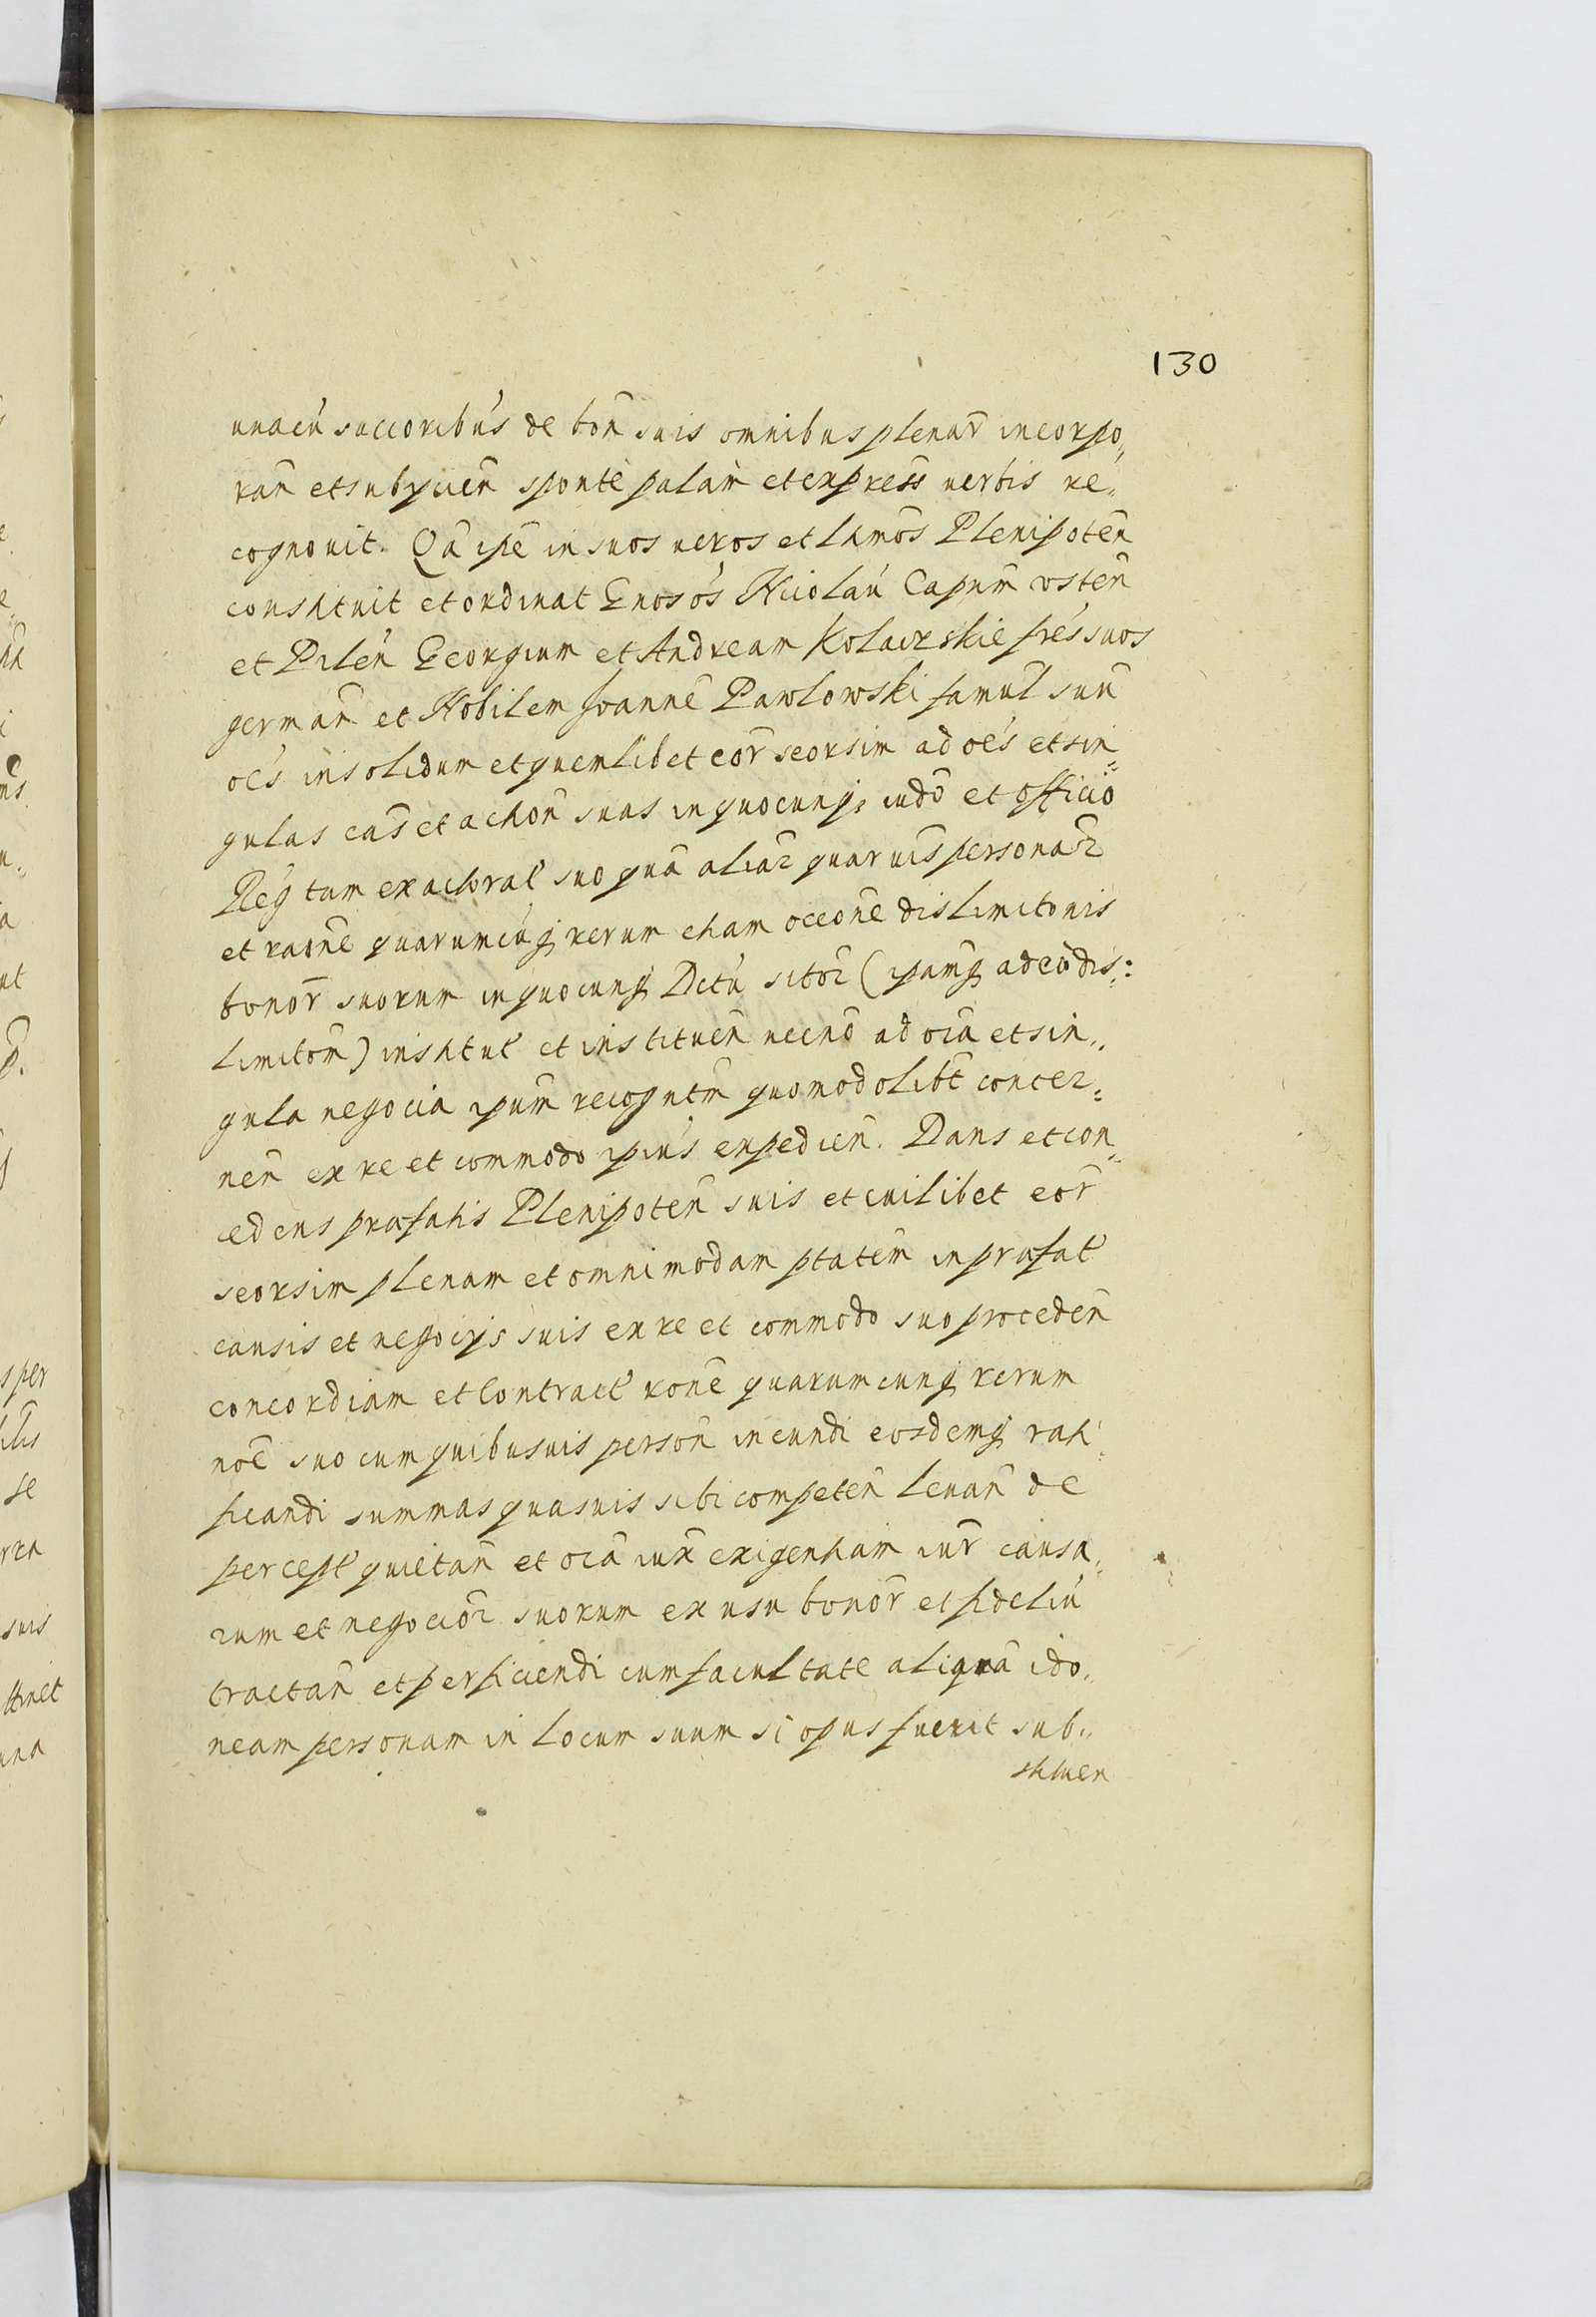 130
unacũ succoribús de bon̄ suis omnibus plenar̄ incorpo„
ran̄ et subycien̄ sponte palam et expres̄s̄ verbis re„
cognovit. Qā ipē in suos veros et lt̄mos Plenipoten̄
constituit et ordinat Gnosós Nicolaú Capn̄m osten̄
et Pilen̄ Georgium et Andream Kolaczskie frés suos
german̄ et Nobilem Joannē Pawlowski famul̄ suū
oés in solidum et quemlibet eor̄ seorsim ad oés et sin„
gulas cās̄ et action̄ suas in quocunq́; iudō et officio
Reg̃ tam ex actorat́ suo quā aliar̄ quarvis̄ personar̄
et raōne quarumcūq́ rerum etiam occōne dislimitonis
bonor̄ suorum in quocunq́ Dctú sitor̄ (ipamq́ ad eō dis„
limitōn̄) institut́ et instituen̄ necnō ad oīā et sin„
gula negocia ipum̄ recogntm̄ quomodolibt̄ concer„
nen̄ ex re et commodo ipiús expedien̄. Dans et con„
cedens præfatis Plenipoten̄ suis et cuilibet eor̄
seorsim plenam et omnimodam ptatem̄ in præfat́
causis et negocijs suis ex re et commodo suo proceden̄
concordiam et Contract́ rōnē quarumcunq́ rerum
noē suo cum quibusuis person̄ ineundi eosdemq́ rati„
ficandi summas quasuis sibi competen̄ leuan̄ de
percept́ quietan̄ et oīā iux̄ exigentiam iur̄ causa„
rum et negocior̄ suorum ex usu bonor̄ et fideliú
tractan̄ et perficiendi cum facultate aliquā ido„
neam personam in locum suum si opus fuerit sub„
stituen